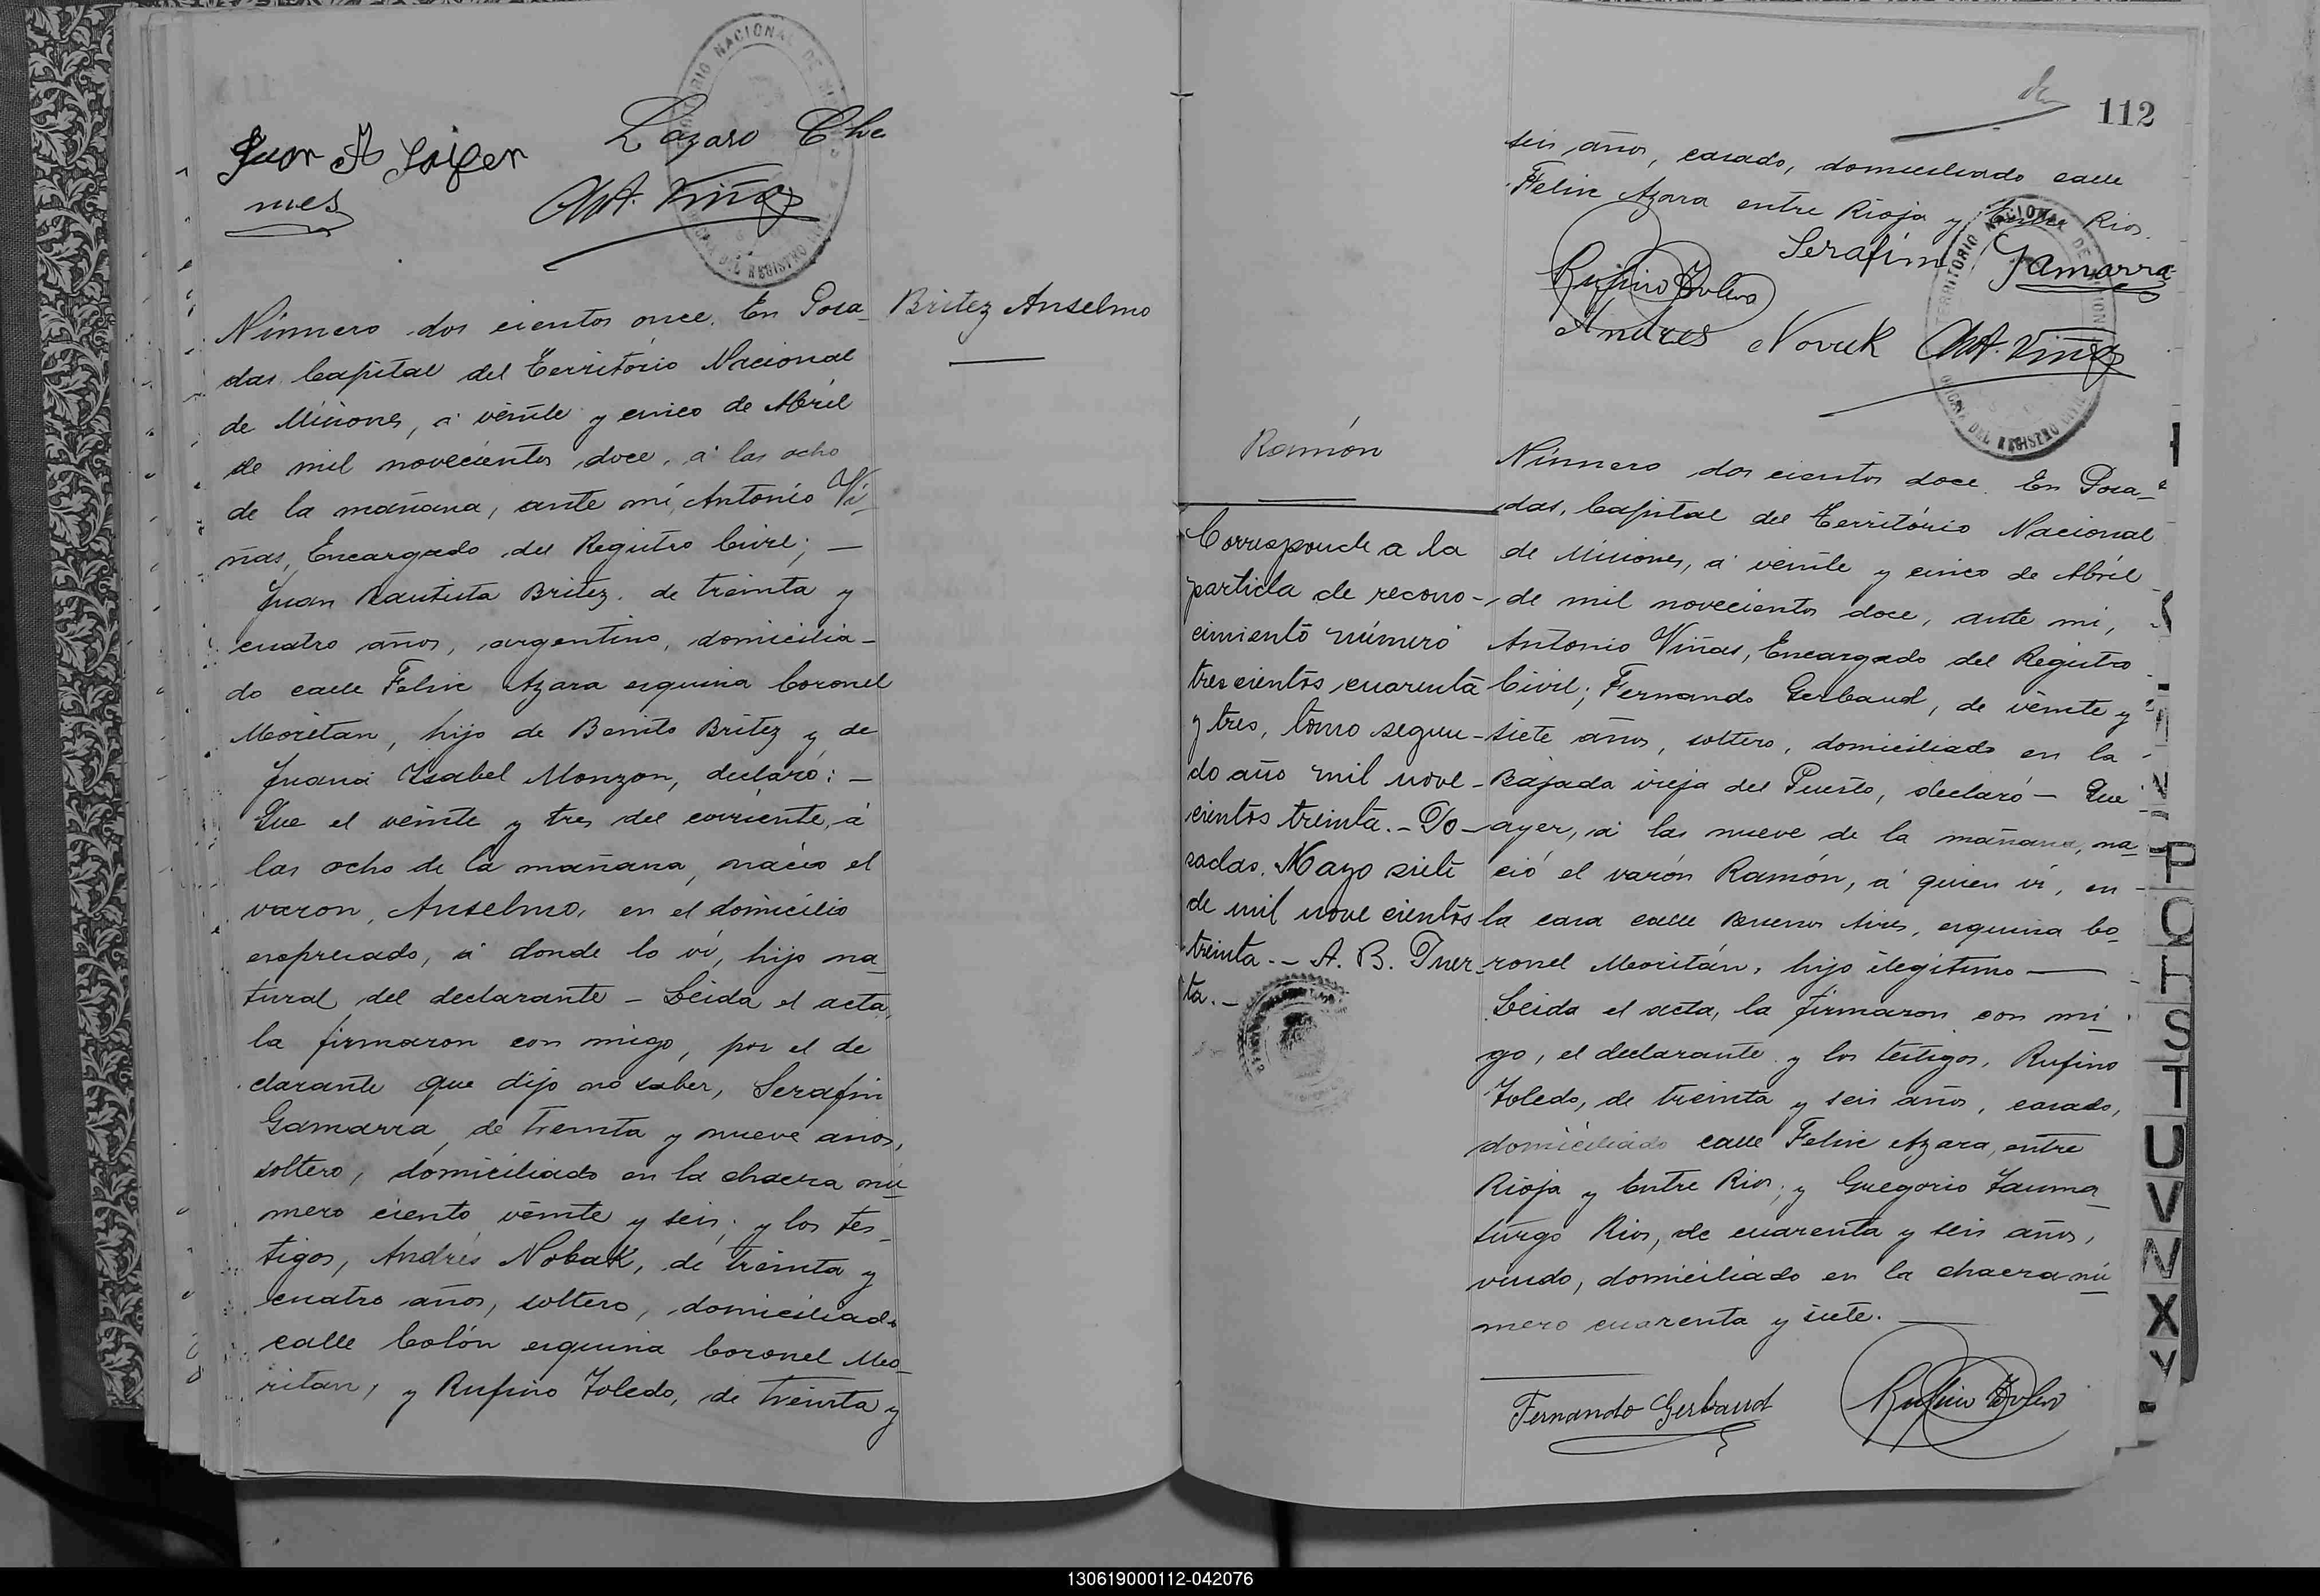 TERRITORIO NACIONAL DE MISIONES
OFICINA DEL REGISTRO CIVIL
Lazaro Che
mes
Ant. Viñas
Número dos cientos once. En Posa_
Britez Anselmo
das Capital del Território Nacional
de Misiones, á veinte y cinco de Abril
de mil novecientos doce, á las ocho
de la mañana, ante mi, Antonio Vi_
ñas, Encargado del Registro Civil; —
Juan Bautista Britez, de treinta y
cuatro años, argentino, domicilia-
do calle Felix Azara esquina Coronel
Moritan, hijo de Benito Britez y de
Juana Isabel Monzon, declaró: —
Que el veinte y tres del corriente, á
las ocho de la mañana, nació el
varon, Anselmo, en el domicilio
expresado, á donde lo ví, hijo na_
tural del declarante – Leida el acta,
la firmaron con migo, por el de
clarante que dijo no saber, Serafin
Gamarra, de treinta y nueve años,
soltero, domiciliado en la chacra nú_
mero ciento veinte y seis; y los tes_
tigos, Andrés Nobak, de treinta y
cuatro años, soltero, domiciliado
calle Colón esquina Coronel Mo_
ritan, y Rufino Toledo, de treinta y
112
seis años, casado, domiciliado calle
Felix Azara entre Rioja y Entre Rios.
Serafim Gamarra
Rufino Toledo
Andres Novak
Ant. Viñas
TERRITORIO NACIONAL DE MISIONES
OFICINA DEL REGISTRO CIVIL
Ramón
Corresponde a la
partida de recono-
cimiento número
trescientos cuarenta
y tres, tomo segun-
do año mil nove-
cientos treinta.- Po-
sadas, Mayo siete
de mil nove cientos
treinta.- A. B. Puer-
ta.-
Número dos cientos doce. En Posa_
das, Capital del Território Nacional
de Misiones, á veinte y cinco de Abril
de mil novecientos doce, ante mi,
Antonio Viñas, Encargado del Registro
Civil; Fernando Gerbaud, de veinte y
siete años, soltero, domiciliado en la
Bajada vieja del Puerto, declaró — Que
ayer, á las nueve de la mañana, na_
ció el varón Ramón, á quien ví, en
la casa calle Buenos Aires, esquina Co_
ronel Moritán, hijo ilegitimo —
Leida el acta, la firmaron con mi_
go, el declarante y los testigos, Rufino
Toledo, de treinta y seis años, casado,
domiciliado calle Felix Azara, entre
Rioja y Entre Rios; y Gregorio Tauma_
turgo Rios, de cuarenta y seis años,
viudo, domiciliado en la chacra nú_
mero cuarenta y siete. —
Fernando Gerbaud
Rufino Toledo
P
Q
H
S
T
U
V
N
X
Y
130619000112-042076